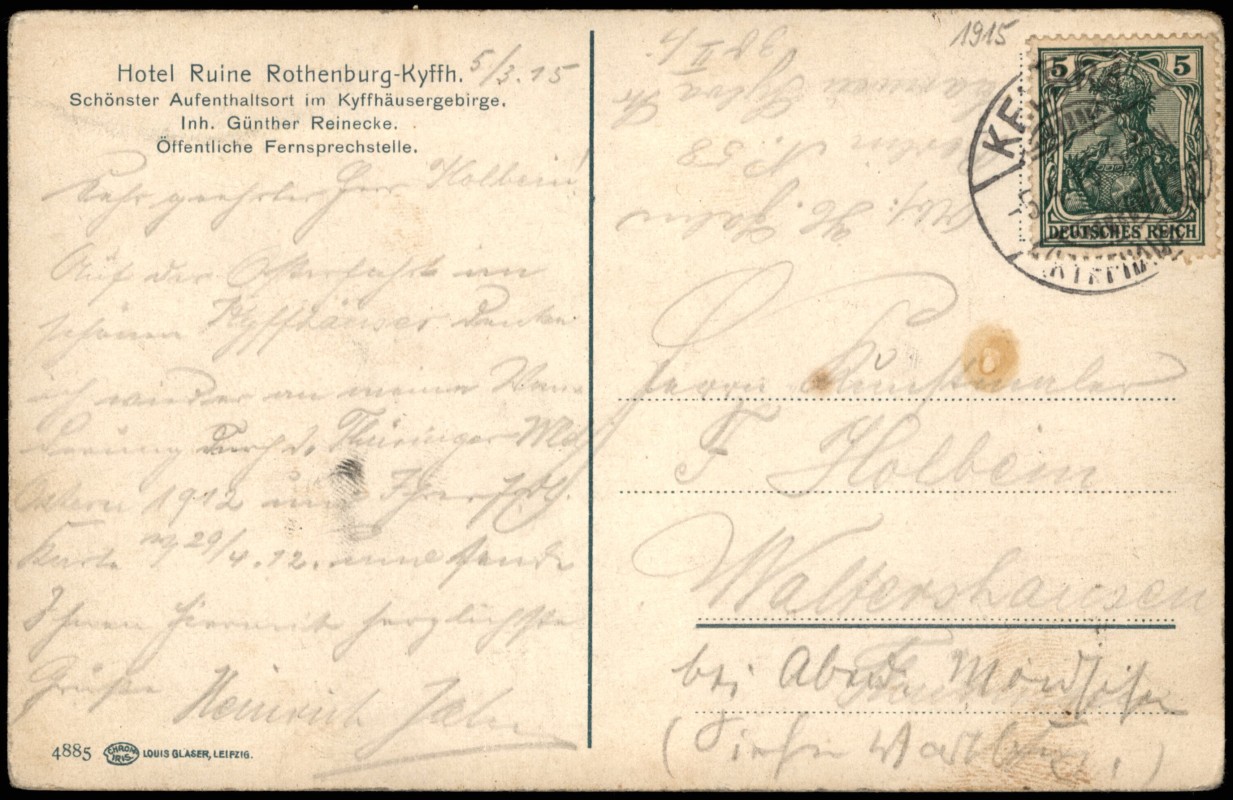 Hotel Ruine Rothenburg-Kyffh.
5/3.15
Schönster Aufenthaltsort im Kyffhäusergebirge.
Inh. Günther Reinecke.
Öffentliche Fernsprechstelle.
Sehr geehrter Herr Holbein!
Auf der Osterfahrt im
schönen Kyffhäuser denke
ich wieder an meine Wan-
derung durch d. Thüringer Wld
Ostern 1912 und Ihre
Karte 29/4.12. und sende
Ihnen hiermit herzlichste
Grüße Heinrich Jahn
4885 CHROM IRIS LOUIS GLASER, LEIPZIG.
1915
5 5
DEUTSCHES REICH
Abs: H. Jahn
Berlin N. 58
Carmen Sylva Str
Herrn Kunstmaler
F Holbein
Waltershausen
bei
(Siehe